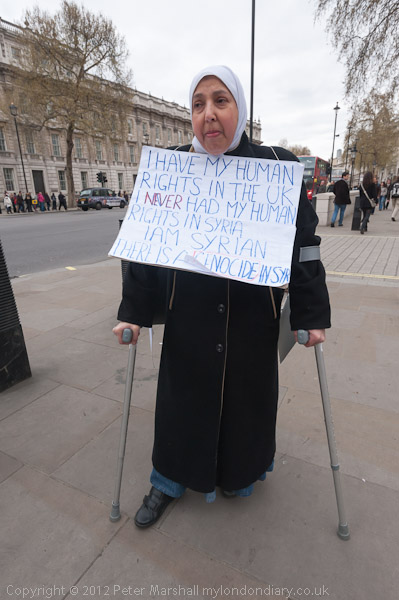 I HAVE MY HUMAN
RIGHTS IN THE UK
I NEVER HAD MY HUMAN
RIGHTS IN SYRIA
I AM SYRIAN
THERE IS A GENOCIDE IN SYR
Copyright © 2012 Peter Marshall mylondondiary.co.uk